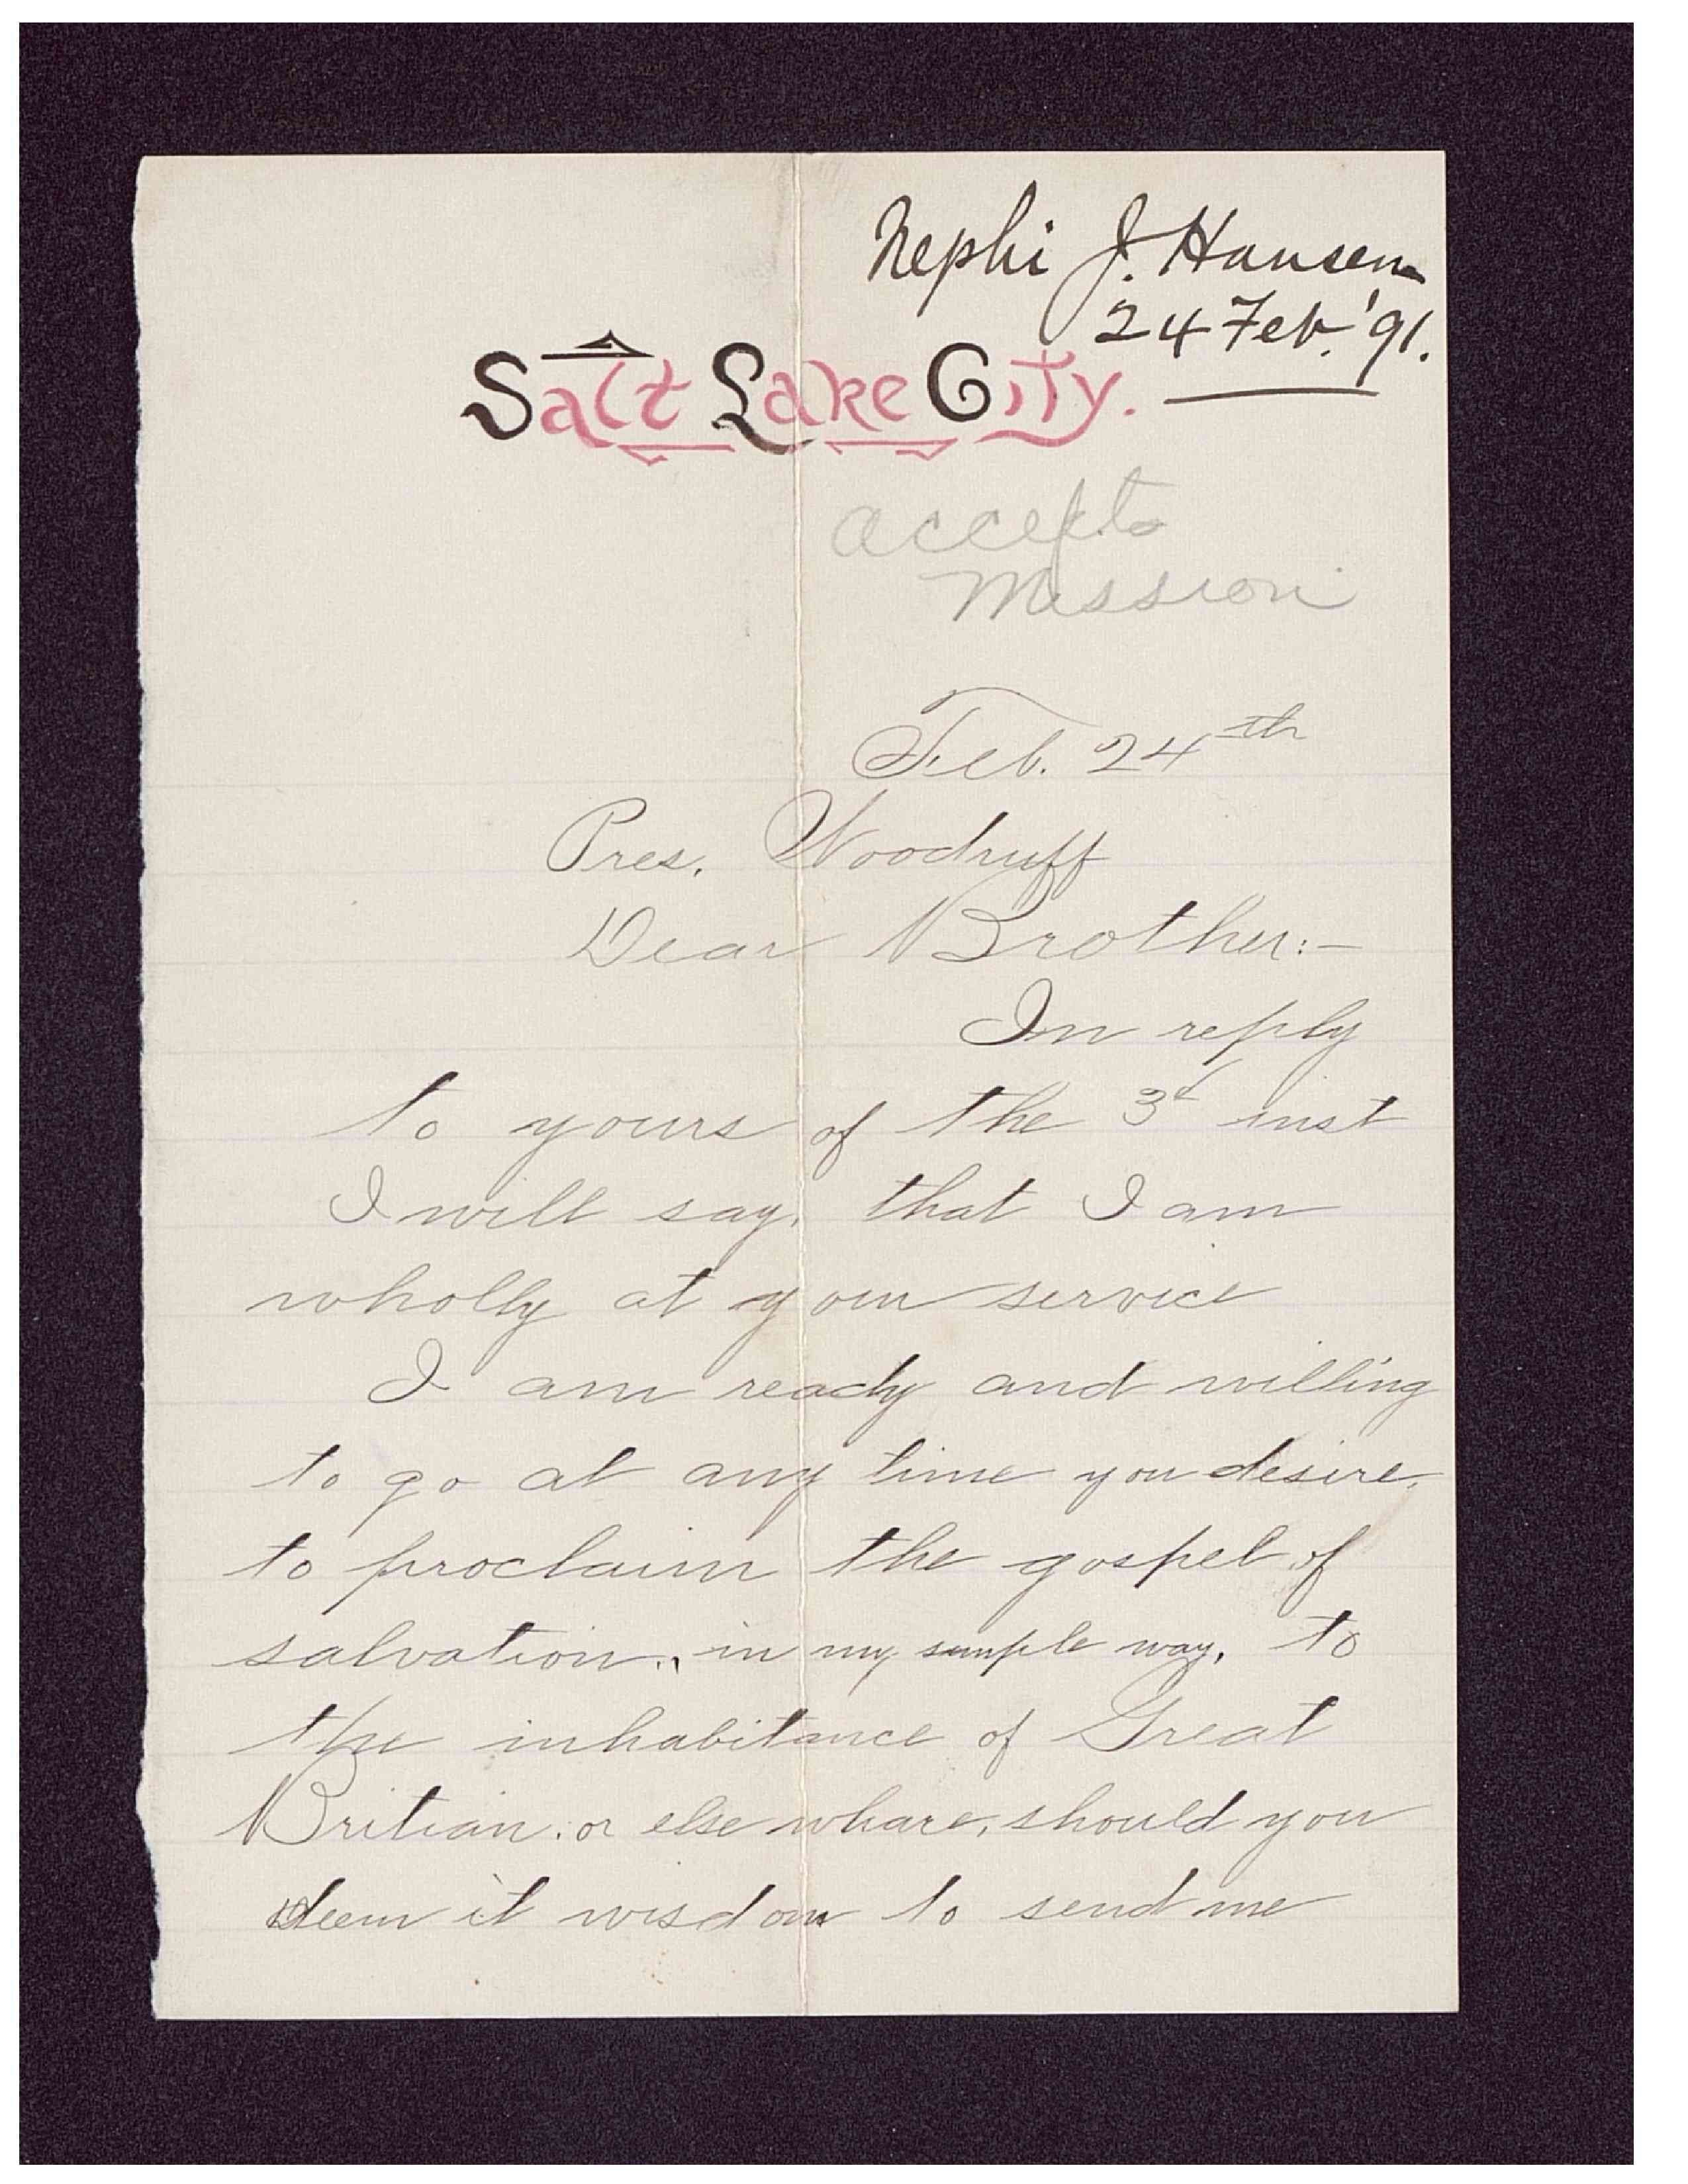 Nephi J. Hansen
24 Feb. '91.
Salt Lake City.
accepts
Mission
Feb. 24th
Pres. Woodruff
Dear Brother:-
In reply
to yours of the 3d inst
I will say, that I am
wholly at your service
I am ready and willing
to go at any time you desire,
to proclaim the gospel of
salvation, in my simple way, to
the inhabitance of Great
Britian, or else whare, should you
deem it wisdom to send me